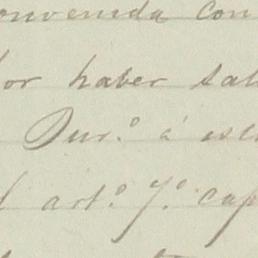 convenida con
por haber sal
Dur.º á est
art.º 7.º cap